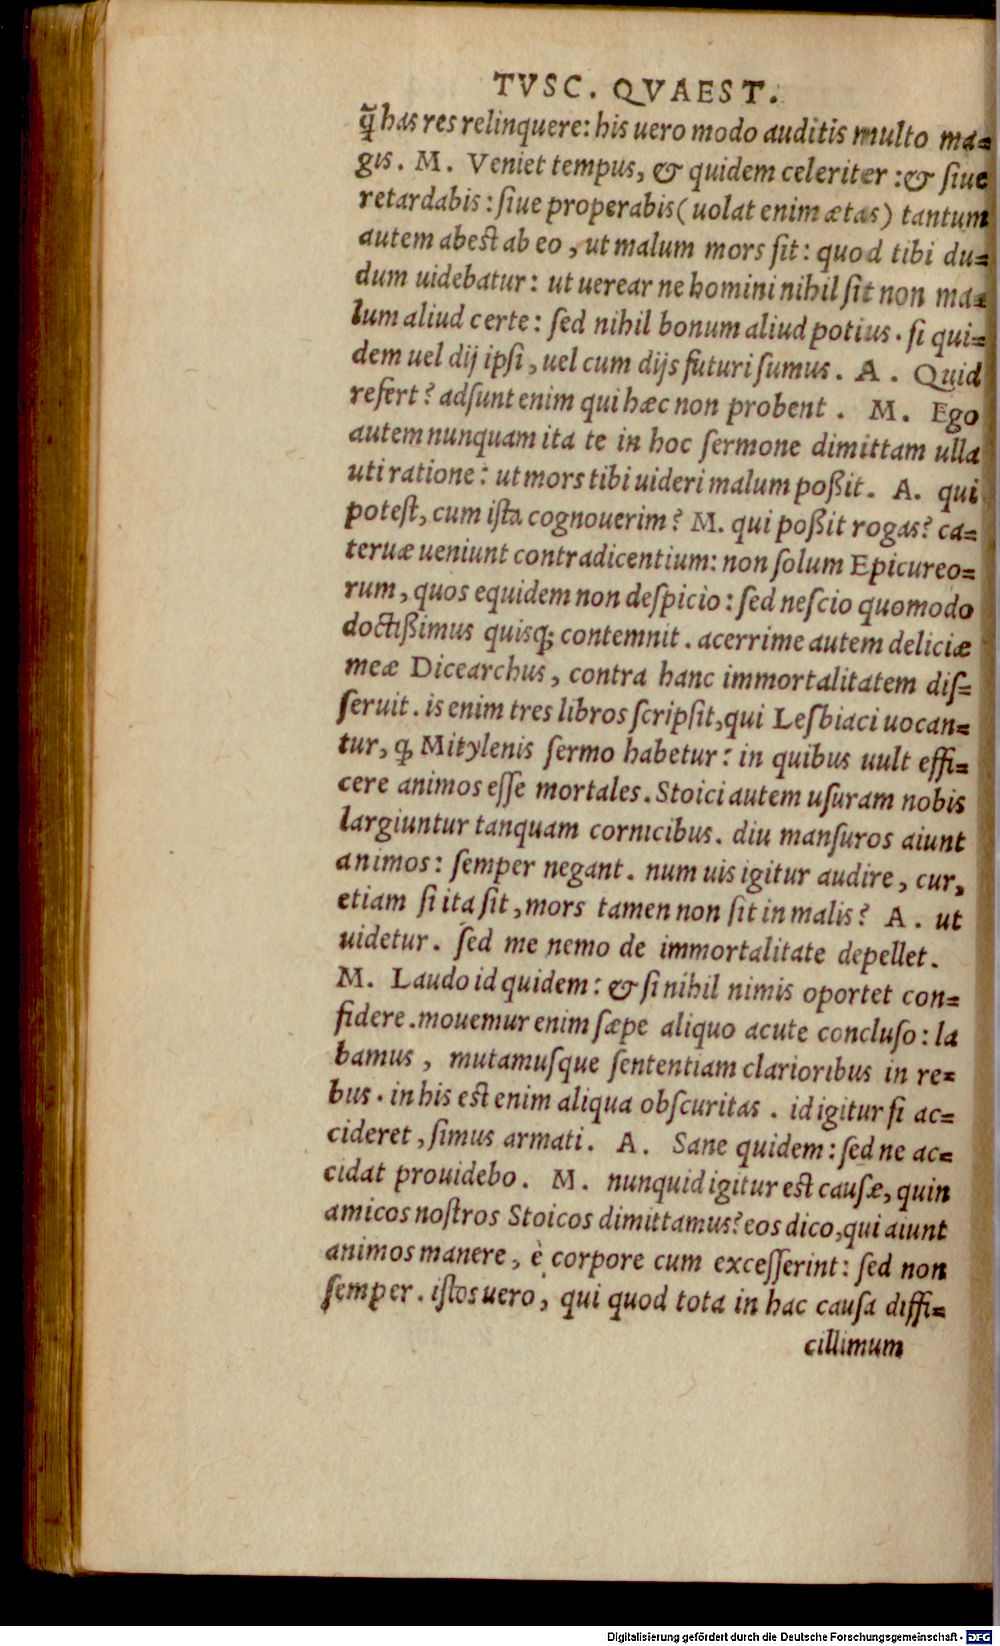 TVSC. QVAEST.
q̃ has res relinquere: his uero modo auditis multo ma=
gis. M. Veniet tempus, & quidem celeriter :& ſiue
retardabis : ſiue properabis (uolat enim ætas) tantum
autem abest ab eo, ut malum mors ſit: quod tibi du=
dum uidebatur: ut uerear ne homini nihil ſit non ma=
lum aliud certe: ſed nihil bonum aliud potius. ſi qui=
dem uel dij ipſi, uel cum dijs futuri ſumus. A. Quid
refert? adſunt enim qui hæc non probent. M. Ego
autem nunquam ita te in hoc ſermone dimittam ulla
uti ratione: ut mors tibi uideri malum poßit. A. qui
poteſt, cum iſta cognouerim? M. qui poßit rogas? ca=
teruæ ueniunt contradicentium: non ſolum Epicureo=
rum, quos equidem non deſpicio: ſed neſcio quomodo
doctißimus quisq; contemnit. acerrime autem deliciæ
meæ Dicearchus, contra hanc immortalitatem diſ=
ſeruit. is enim tres libros ſcripſit, qui Leſbiaci uocan=
tur, ꝙ Mitylenis ſermo habetur: in quibus uult effi=
cere animos eſſe mortales. Stoici autem uſuram nobis
largiuntur tanquam cornicibus. diu manſuros aiunt
animos: ſemper negant. num uis igitur audire, cur,
etiam ſi ita ſit, mors tamen non ſit in malis? A. ut
uidetur. ſed me nemo de immortalitate depellet.
M. Laudo id quidem: & ſi nihil nimis oportet con=
fidere. mouemur enim ſæpe aliquo acute concluſo: la
bamus, mutamuſque ſententiam clarioribus in re=
bus. in his est enim aliqua obſcuritas. id igitur ſi ac=
cideret, ſimus armati. A. Sane quidem: ſed ne ac=
cidat prouidebo. M. nunquid igitur est cauſæ, quin
amicos noſtros Stoicos dimittamus? eos dico, qui aiunt
animos manere, è corpore cum exceſſerint: ſed non
ſemper. iſtos uero, qui quod tota in hac cauſa diffi=
cillimum
Digitalisierung gefördert durch die Deutsche Forschungsgemeinschaft - DFG